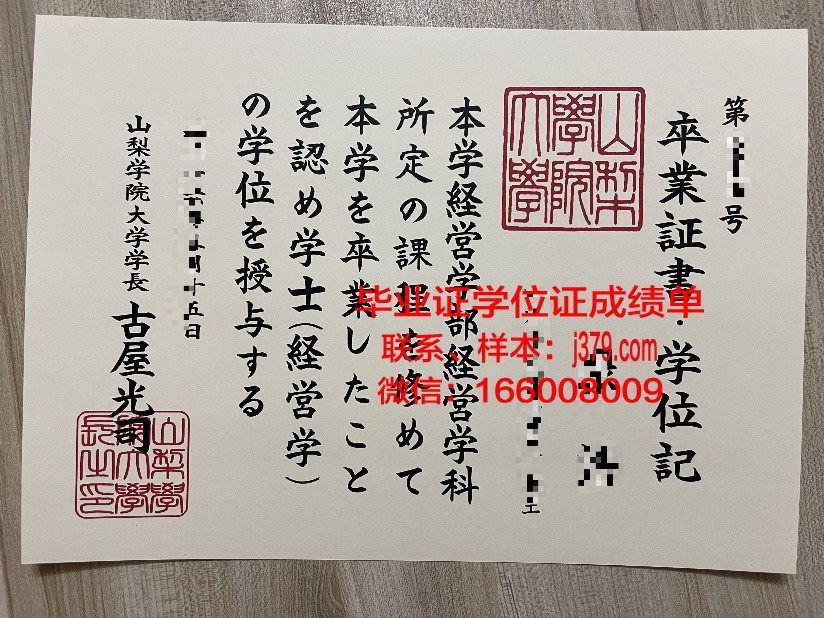 第
号
卒業証書・学位記
山梨
學院
大學
本学経営学部経営学科
所定の課程を修めて
本学を卒業したこと
を認め学士(経営学)
の学位を授与する
月十五日
山梨学院大学学長 古屋光司
山梨學
院大學
長之印
毕业证学位证成绩单
联系、样本:j379.com
微信:166008009